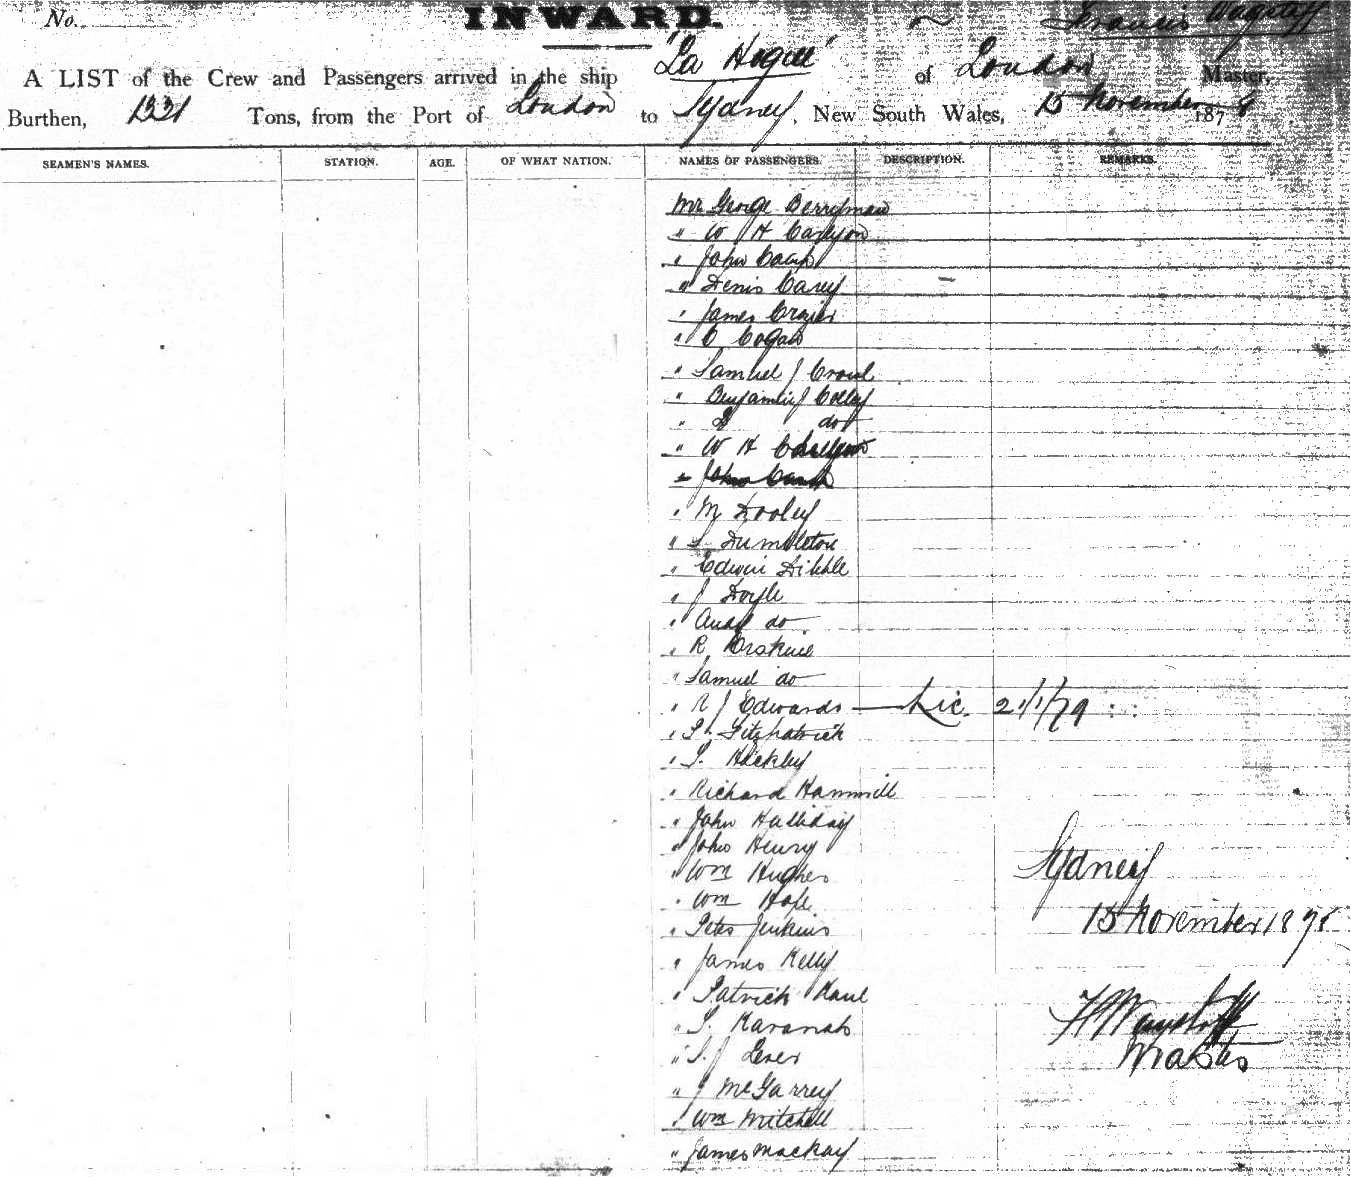 No.
INWARD.
Francis Wagstaff
A LIST of the Crew and Passengers arrived in the ship "La Hogue" of London Master,
Burthen, 1331 Tons, from the Port of London to Sydney, New South Wales, 15 November 1878
SEAMEN'S NAMES. STATION. AGE. OF WHAT NATION. NAMES OF PASSENGERS. DESCRIPTION. REMARKS.
Mr George Berryman
" W H
" John Camp
" Denis Carey
" James Crozier
" O Cogan
" Samuel J
" Benjamin Colley
" do
" W H
" John
" M Dooley
" S. Dumbleton
" Edwin Dibble
" J Doyle
" do
" R Erskine
" Samuel do
" R J Edwards — Lic. 21/1/79
" Fitzpatrick
" Hickley
" Richard Hammill
" John Halliday
" John Henry
" Wm Hughes
" Wm Hope
" Peter Jenkins
" James Kelly
" Patrick
" Kavanah
" J Lever
" J McGarrey
" Wm Mitchell
" James Mackay
Sydney
15 November 1878
F Wagstaff
Master